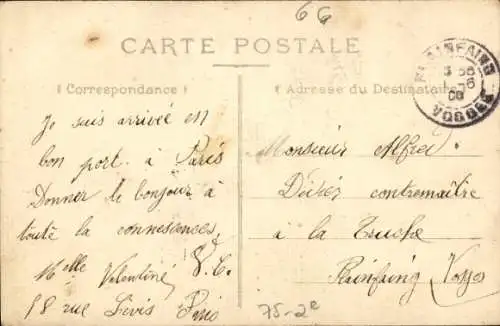 66
CARTE POSTALE
Correspondance
Adresse du Destinataire
PLAINFAING
VOSGES
Je suis arrivée en
bon port à Paris
Donner le bonjour à
toute la connessances
Melle Valentine V. C.
18 rue Lévis Paris
Monsieur Alfred
contremaître
à la Truche
Plainfaing Vosges
75-2e